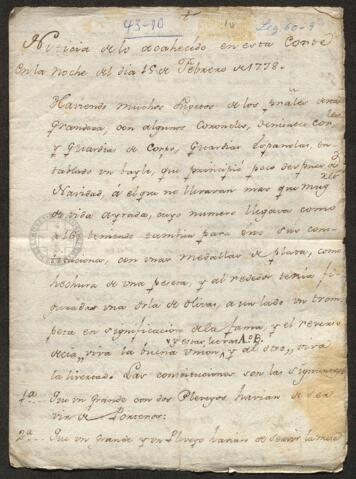 43-10
10
Leg. 60-9
Noticia de lo acahecido en esta Corte
En la noche del dia 15 de Febrero de 1778.
Haviendo muchos sugetos de los
grandeza, con algunos Coroneles,
y Guardias de Corps, Guardias Españolas, en
tablado un bayle, que principió poco despues de
Navidad, á el que no llevaran mas que mug.
de vida ayrada, cuyo numero llegava como
á 16 teniendo tambien para eso sus cons
tituciones, con unas medallas de plata, como
hechura de una peseta, y al rededor tenia fi
gurada una orla de olivas, a un lado un trom
peta en significacion de la fama, y el reverso
y estas letras A. B.
decia, viva la buena union, y al otro, viva
la livertad. Las constituciones son las siguientes
1ª Que un grande con dos Pleveyos havian de ser
vir de Porteros.
2ª Que un grande y un Pleveyo havian de servir la mesa